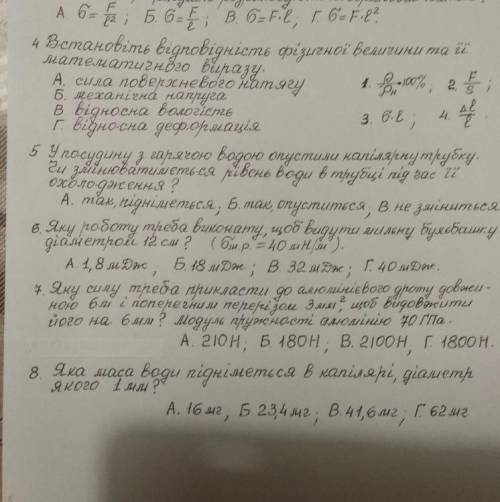 А. σ = F/ℓ² ; Б. σ = F/ℓ ; В. σ = F·ℓ ; Г. σ = F·ℓ².
4 Встановіть відповідність фізичної величини та її
математичного виразу.
А. сила поверхневого натягу 1. ρ/ρн · 100% , 2. F/S ;
Б. механічна напруга
В відносна вологість 3. σ·ℓ ; 4. Δℓ/ℓ .
Г. відносна деформація
5 У посудину з гарячою водою опустили капілярну трубку.
Чи змінюватиметься рівень води в трубці під час її
охолодження?
А. так, підніметься; Б. так, опуститься; В. не зміниться
6. Яку роботу треба виконати, щоб видути мильну бульбашку
діаметром 12 см? (σм.р. = 40 мН/м).
А. 1,8 мДж; Б. 18 мДж; В. 32 мДж; Г. 40 мДж.
7. Яку силу треба прикласти до алюмінієвого дроту довжи-
ною 6м і поперечним перерізом 3мм², щоб видовжити
його на 6мм? Модуль пружності алюмінію 70 ГПа.
А. 210 Н, Б. 180 Н; В. 2100 Н, Г. 1800 Н.
8. Яка маса води підніметься в капілярі, діаметр
якого 1 мм?
А. 16 мг, Б 23,4 мг; В. 41,6 мг; Г. 62 мг